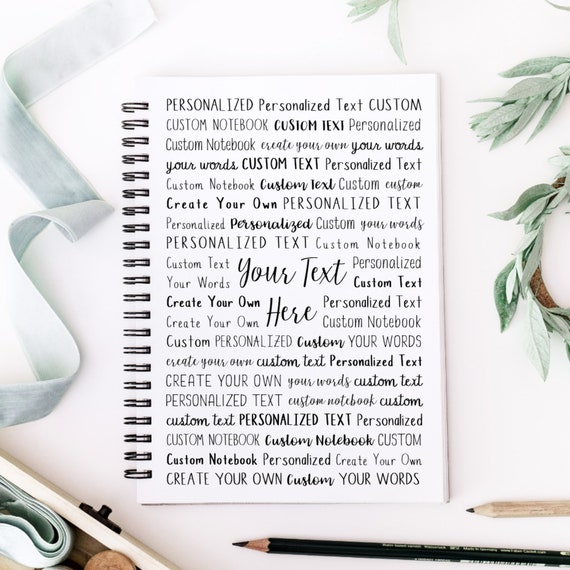 PERSONALIZED Personalized Text CUSTOM
CUSTOM NOTEBOOK CUSTOM TEXT Personalized
Custom Notebook create your own your words
your words CUSTOM TEXT Personalized Text
Custom Notebook Custom Text Custom custom
Create Your Own PERSONALIZED TEXT
Personalized Personalized Custom your words
PERSONALIZED TEXT Custom Notebook
Custom Text Personalized
Your Words Custom Text
Your Text
Here
Create Your Own Personalized Text
Create Your Own Custom Notebook
Custom PERSONALIZED Custom YOUR WORDS
create your own custom text Personalized Text
CREATE YOUR OWN your words custom text
PERSONALIZED TEXT custom notebook custom
custom text PERSONALIZED TEXT Personalized
CUSTOM NOTEBOOK Custom Notebook CUSTOM
Custom Notebook Personalized Create Your Own
CREATE YOUR OWN Custom YOUR WORDS